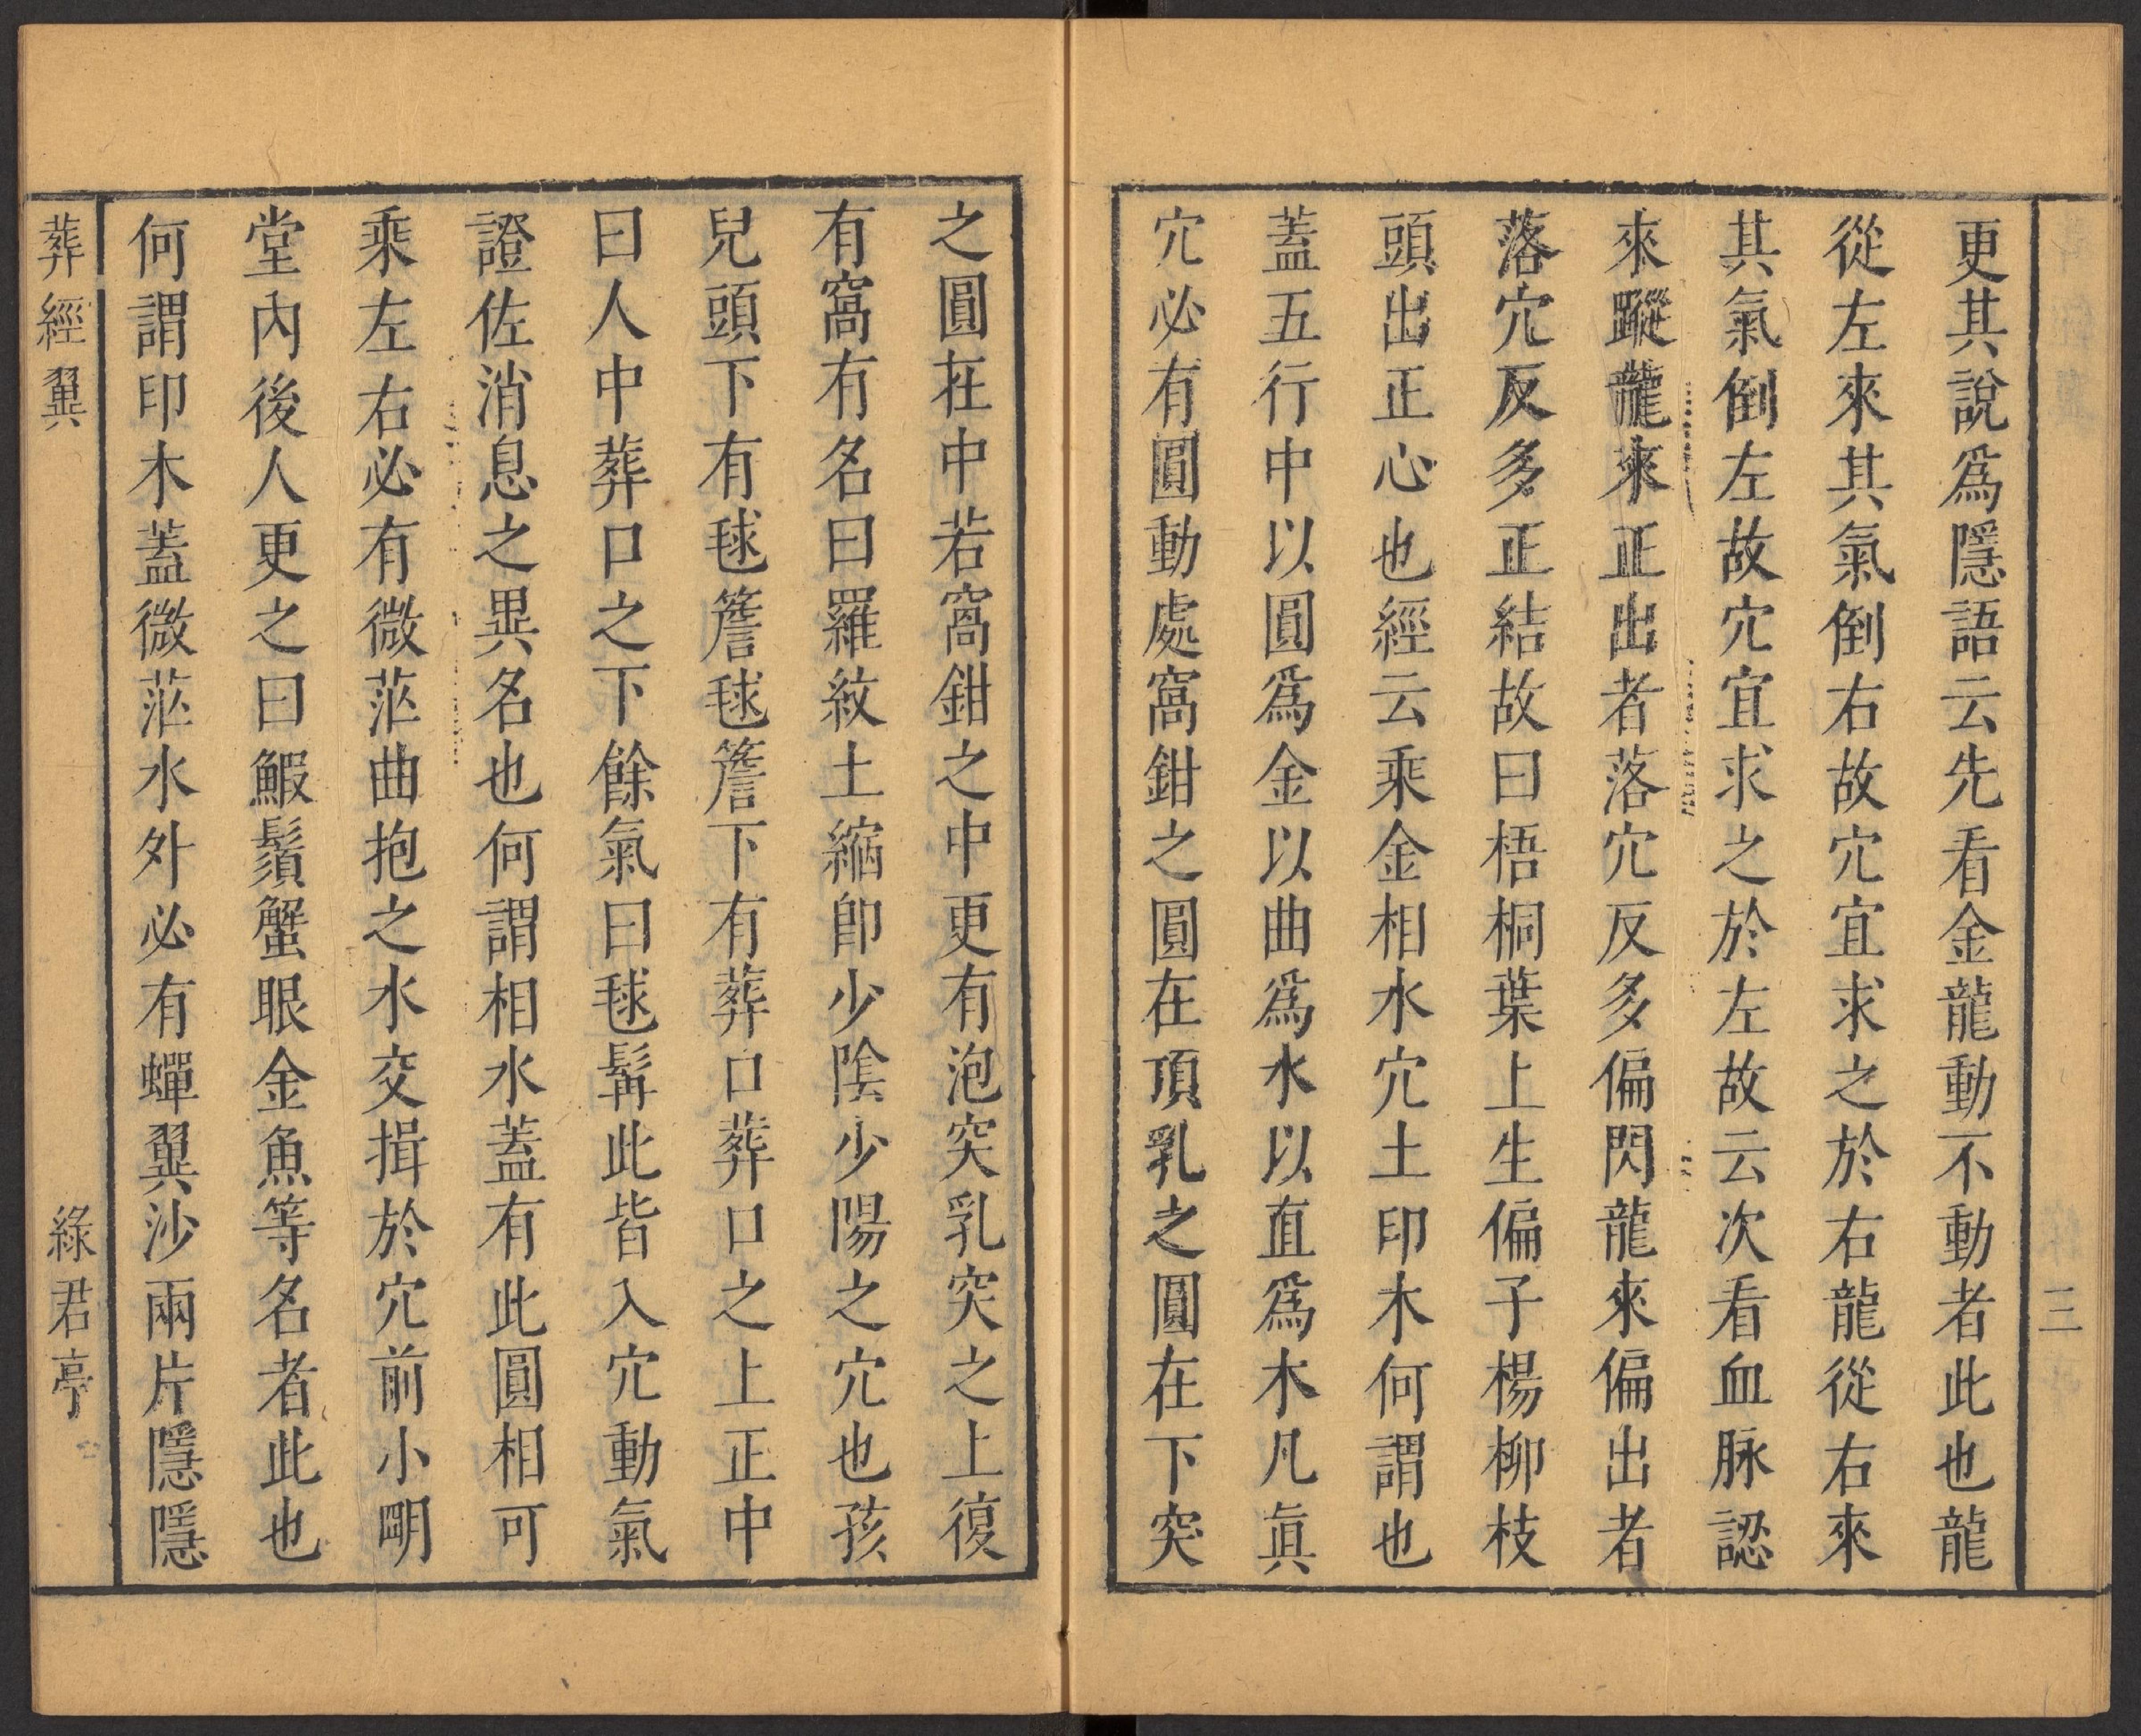 三
更其說爲隱語云先看金龍動不動者此也龍
從左來其氣倒右故穴宜求之於右龍從右來
其氣倒左故穴宜求之於左故云次看血脉認
來蹤龍來正出者落穴反多偏閃龍來偏出者
落穴反多正結故曰梧桐葉上生偏子楊柳枝
頭出正心也經云乘金相水穴土印木何謂也
蓋五行中以圓爲金以曲爲水以直爲木凡眞
穴必有圓動處窩鉗之圓在頂乳之圓在下突
之圓在中若窩鉗之中更有泡突乳突之上復
有窩有名曰羅紋土縮卽少陰少陽之穴也孩
兒頭下有毬簷毬簷下有葬口葬口之上正中
曰人中葬口之下餘氣曰毬髯此皆入穴動氣
證佐消息之異名也何謂相水蓋有此圓相可
乘左右必有微茫曲抱之水交揖於穴前小明
堂內後人更之曰鰕鬚蟹眼金魚等名者此也
何謂印木蓋微茫水外必有蟬翼沙兩片隱隱
葬經翼
綠君亭